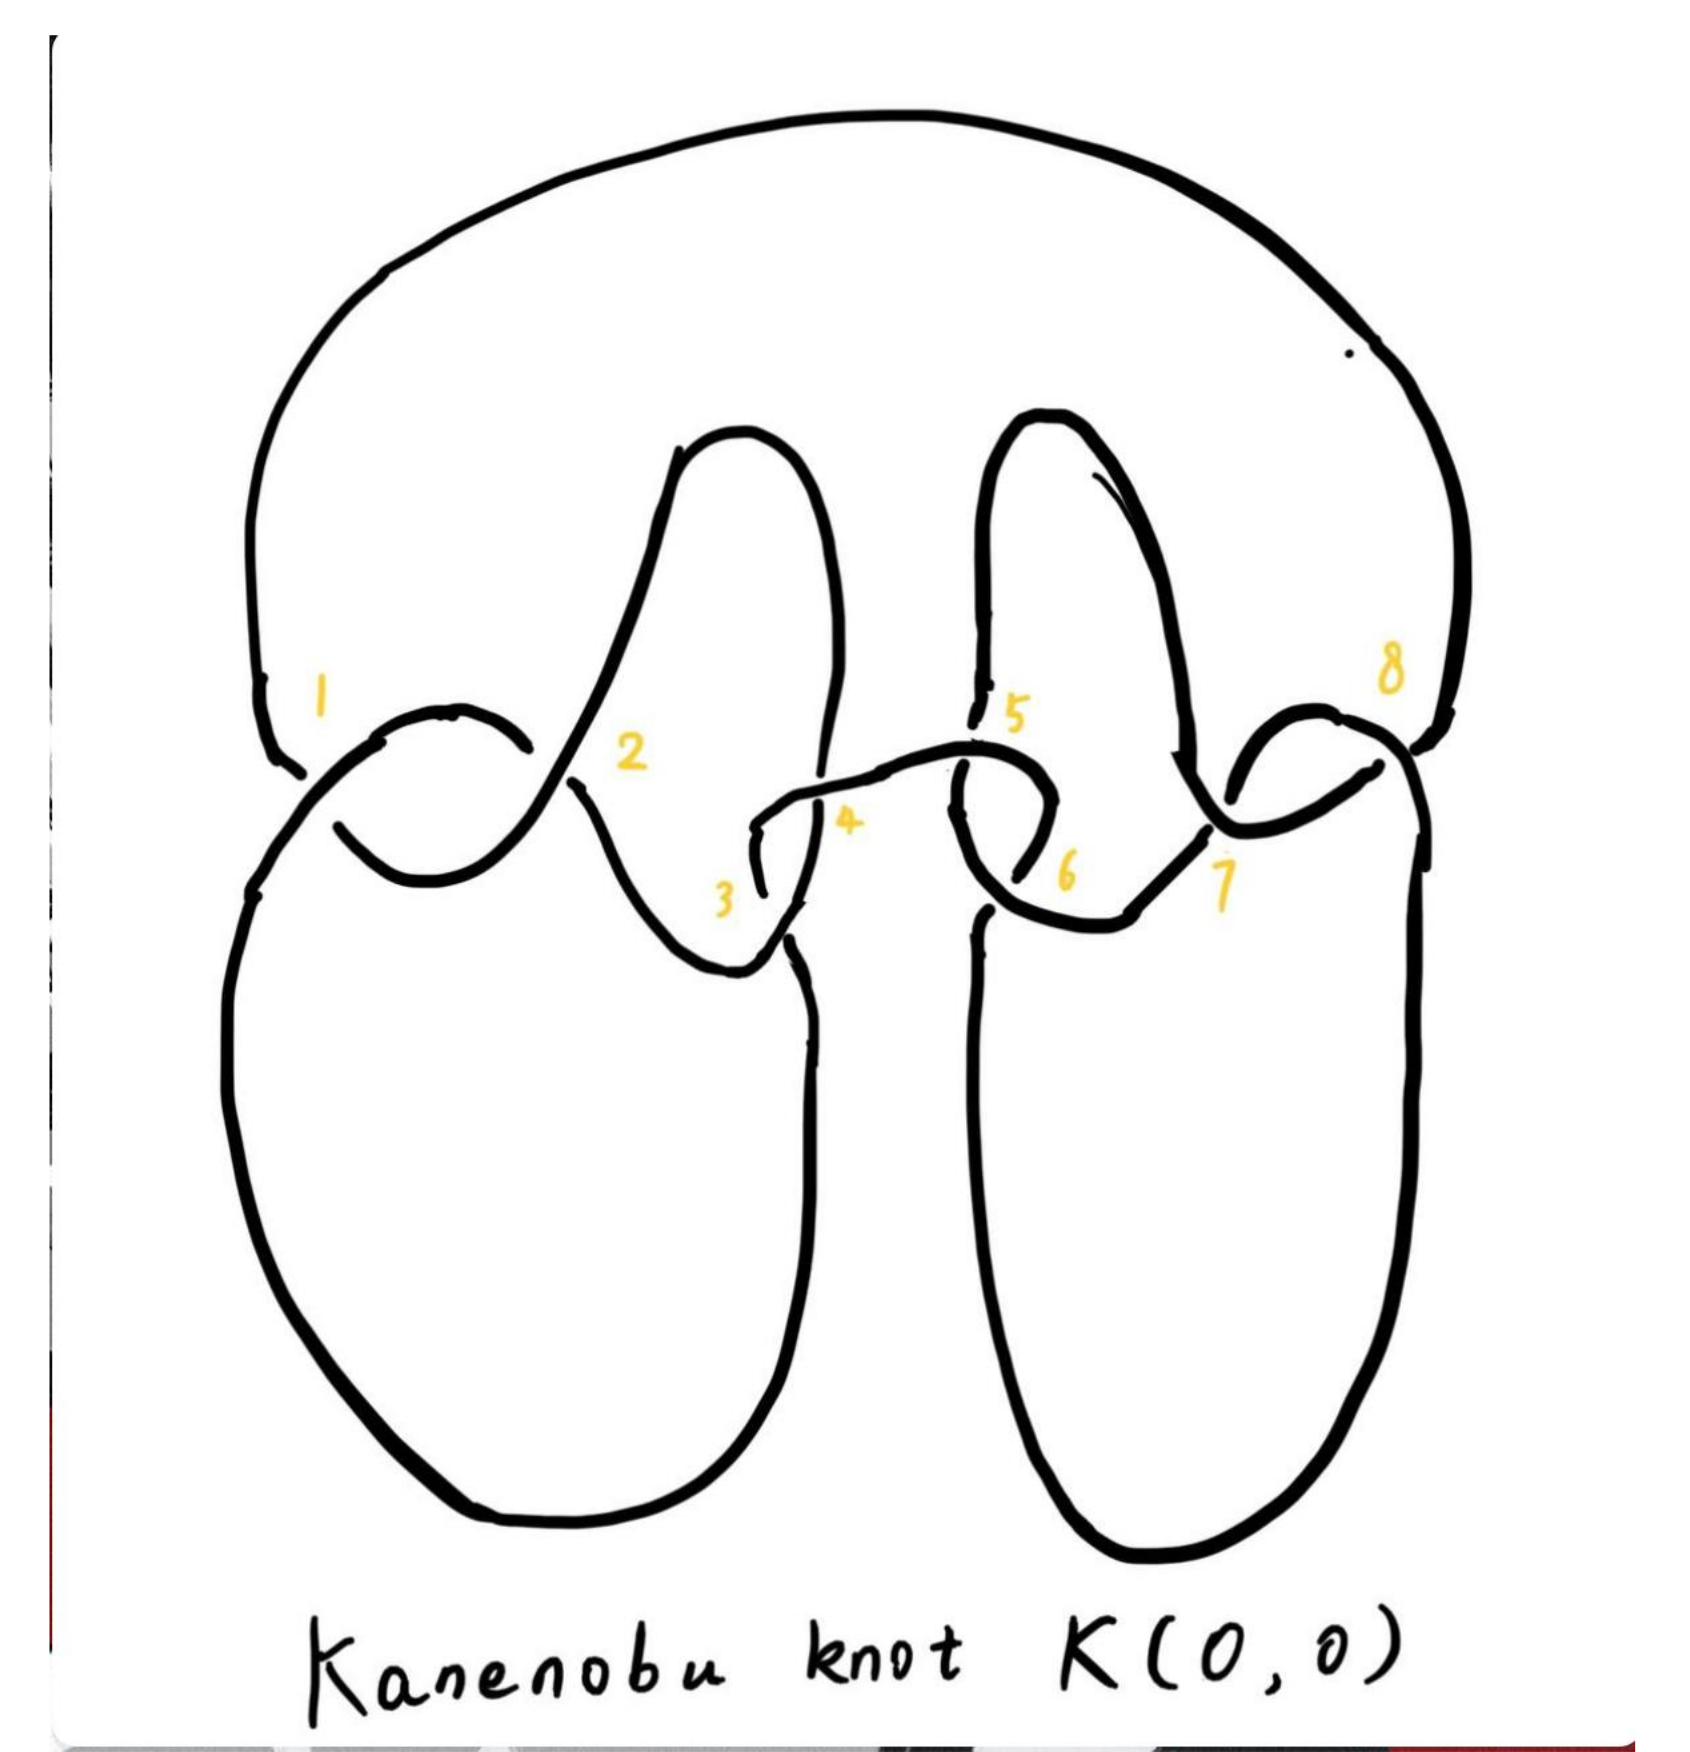 1
2
3
4
5
6
7
8
Kanenobu knot K(0,0)